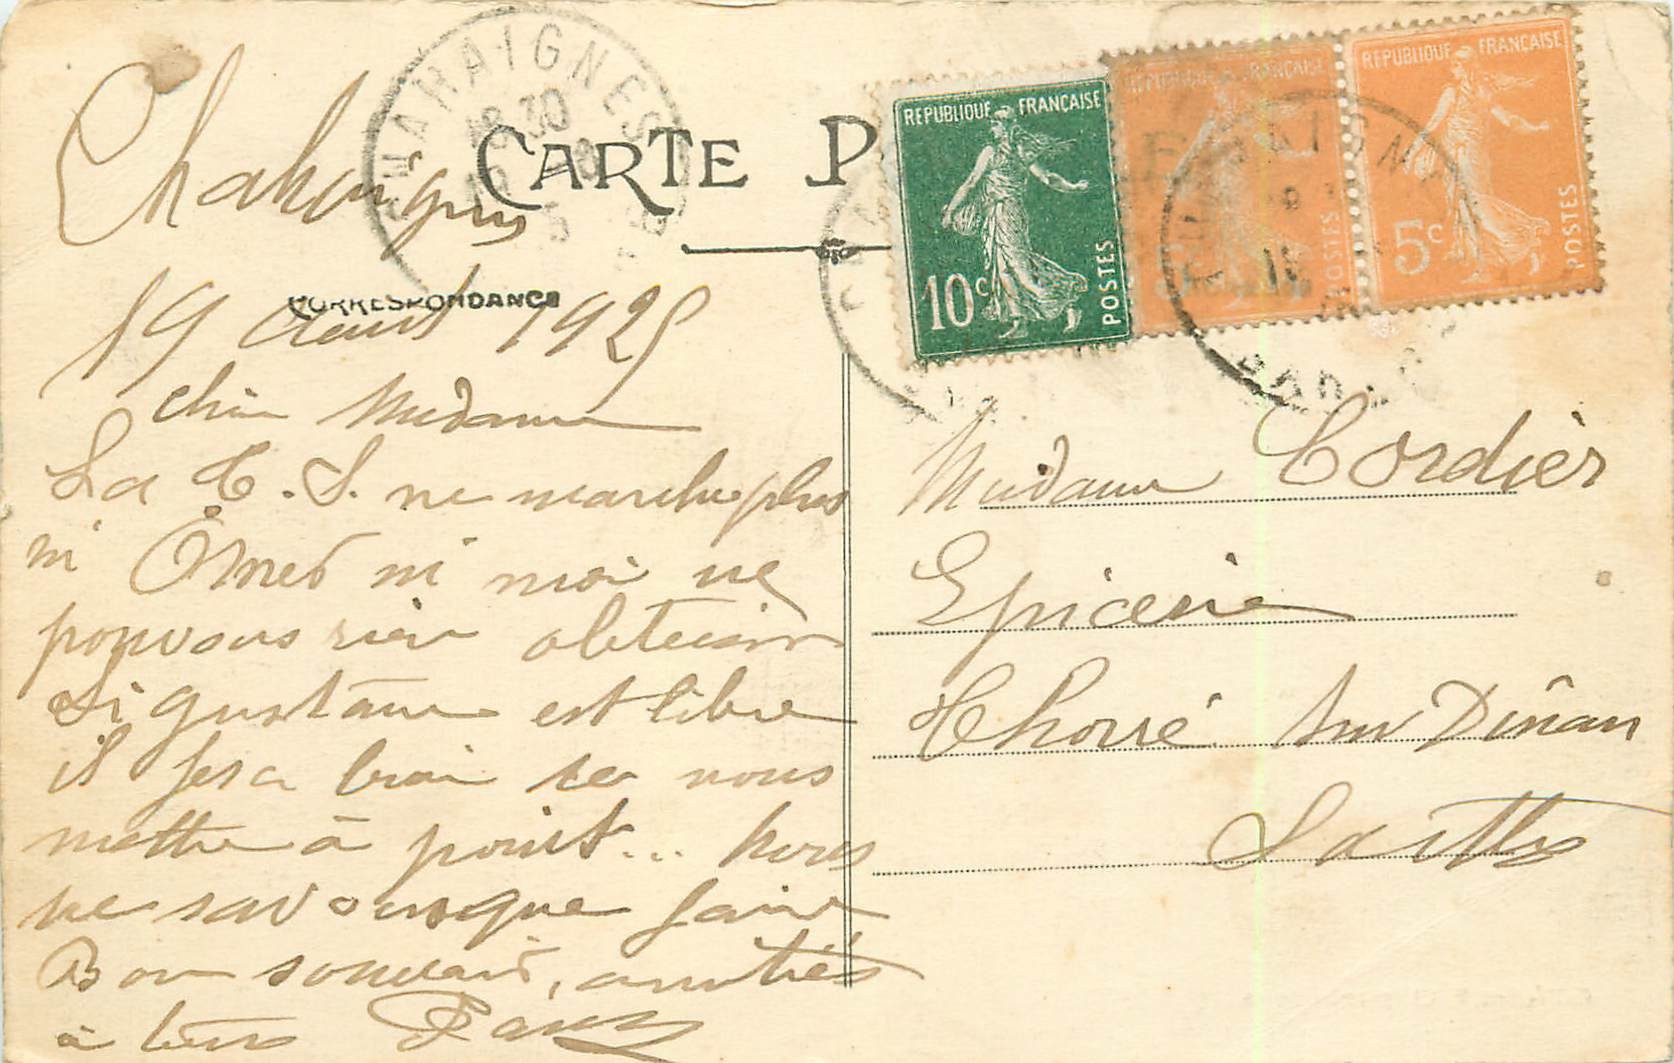 CHAHAIGNES
18 30
CARTE P
REPUBLIQUE FRANÇAISE
10c
POSTES
REPUBLIQUE FRANÇAISE
5c
POSTES
REPUBLIQUE FRANÇAISE
5c
POSTES
Chahaignes
CORRESPONDANCE
19 Aout 1925
chère Madame
La T. S. ne marche plus
ni ni moi ne
pouvons rien obtenir
Si gustave est libre
il fera bien de nous
mettre à point... Nous
ne savons que faire
Bon souvenir, amitiés
à tous
Madame Cordier
Epicerie
Thoiré sur Dinan
Sarthe